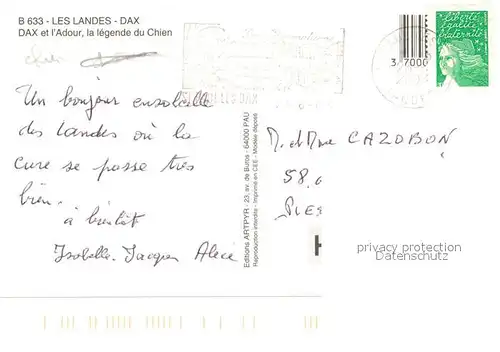 B 633 - LES LANDES - DAX
DAX et l'Adour, la légende du Chien
Un bonjour ensoleillé
des Landes où la
cure se passe très
bien.
à bientôt
Isabelle. Jacques Alice
Editions ARTPYR - 23, av. de Buros - 64000 PAU
Reproduction interdite - Imprimé en CEE - Modèle déposé
3 7000
liberté
égalité
fraternité
M. et Mme CAZOBON
58.
privacy protection
Datenschutz